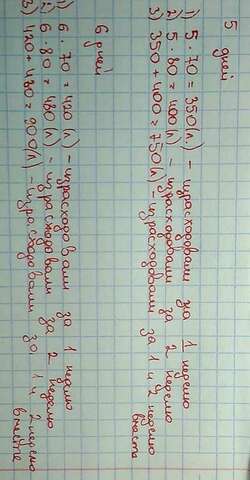 5 дней
1) 5 · 70 = 350(л.) - израсходовали за 1 неделю
2) 5 · 80 = 400(л) - израсходовали за 2 неделю
3) 350 + 400 = 750(л) - израсходовали за 1 и 2 неделю вместе
6 дней
1) 6 · 70 = 420 (л) - израсходовали за 1 неделю
2) 6 · 80 = 480(л) - израсходовали за 2 неделю
3) 420 + 480 = 900(л) - израсходовали за 1 и 2 неделю вместе